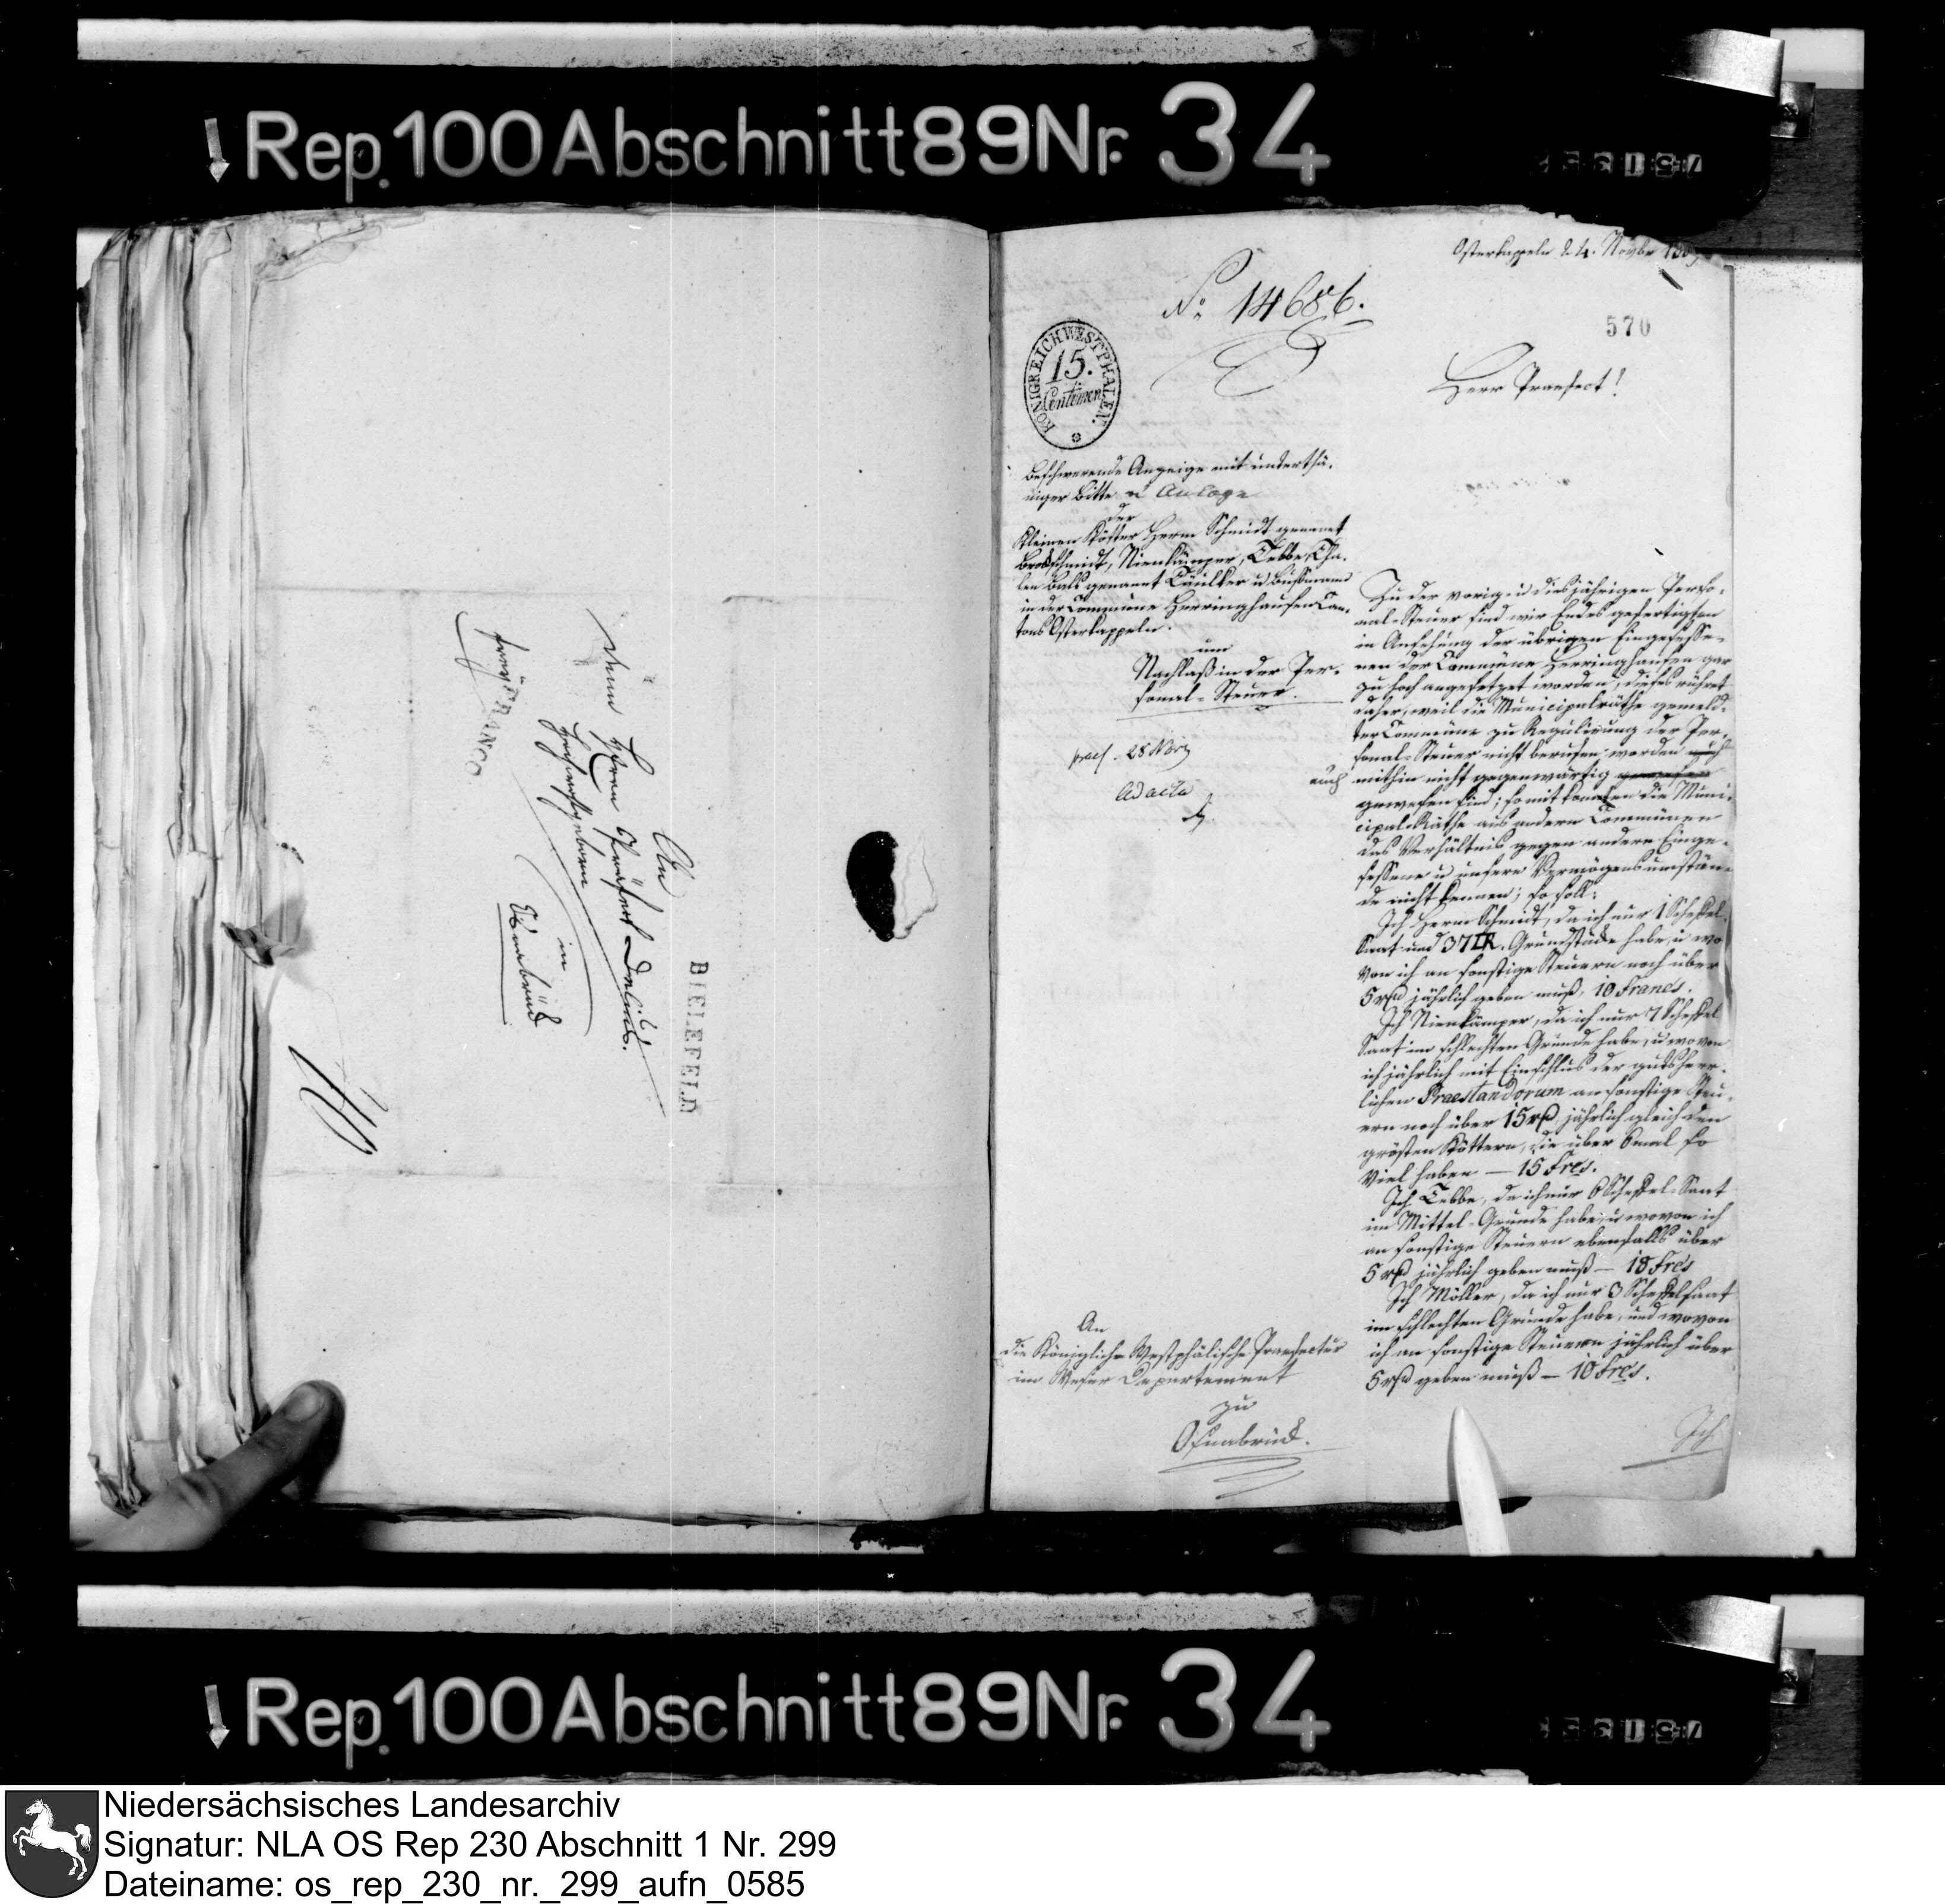 Rep. 100 Abschnitt 89 Nr. 34
frey FRANCO
Dem Herrn Präfect Delius
Hochwohlgeboren
An
in
Osnabrück
BIELEFELD
Osterkappeln 24. Novbr 1809
No: 14686.
570
KÖNIGREICH WESTPHALEN.
15.
Centimen
Herr Praefect!
Beschwerende Anzeige mit unterthä-
niger Bitte u Anlage
der
kleinen Kötter Herm Schmidt genannt
Brokschmidt, Nienkämper, Tebbe,
genannt u Bußmann
in der Commüne Herringhausen Can-
tons Osterkappeln.
um
Nachlaß in der Per-
sonal-Steuer.
praes. 28 Nov
ad acta
Zu der vorig- u diesjährigen Perso-
nal-Steuer sind wir Endes gefertigten
in Ansehung der übrigen Eingesesse-
nen der Commüne Herringhausen gar
zu hoch angesetzet worden; dieses rühret
daher, weil die Municipalräthe gemeld-
ter Commüne zu Regulirung der Per-
sonal-Steuer nicht berufen worden
auch mithin nicht gegenwärtig
gewesen sind; somit konnten die Muni-
cipal-Räthe aus andern Commünen
das Verhältnis gegen andere Einge-
sessene u unsere Vermögensumstän-
de nicht kennen; so soll:
Ich Herm Schmidt, da ich nur 1 Scheffel-
Saat und 37 R. Grundstücke habe, u wo
von ich an sonstige Steuern noch über
5 rß jährlich geben muß, 10 Francs.
Ich Nienkämper, da ich nur 7 Scheffel
Saat im schlechten Grunde habe, u wovon
ich jährlich mit Einschluß der gutsherr-
lichen Praestandorum an sonstige Steu-
ern noch über 15 rß jährlich gleich den
grösten Köttern, die über 6mal so
viel haben — 15 Frcs.
Ich Tebbe, da ich nur 6 Scheffel-Saat
im Mittel-Grunde habe, u wovon ich
an sonstige Steuern ebenfalls über
5 rß jährlich geben muß — 10 Frcs
Ich Möller, da ich nur 3 Scheffelsaat
im schlechten Grunde habe, und wovon
ich an sonstige Steuern jährlich über
5 rß geben muß — 10 Frcs.
Ich
An
die Königliche Westphälische Praefectur
im Weser Departement
zu
Osnabrück.
Rep. 100 Abschnitt 89 Nr. 34
Niedersächsisches Landesarchiv
Signatur: NLA OS Rep 230 Abschnitt 1 Nr. 299
Dateiname: os_rep_230_nr._299_aufn_0585